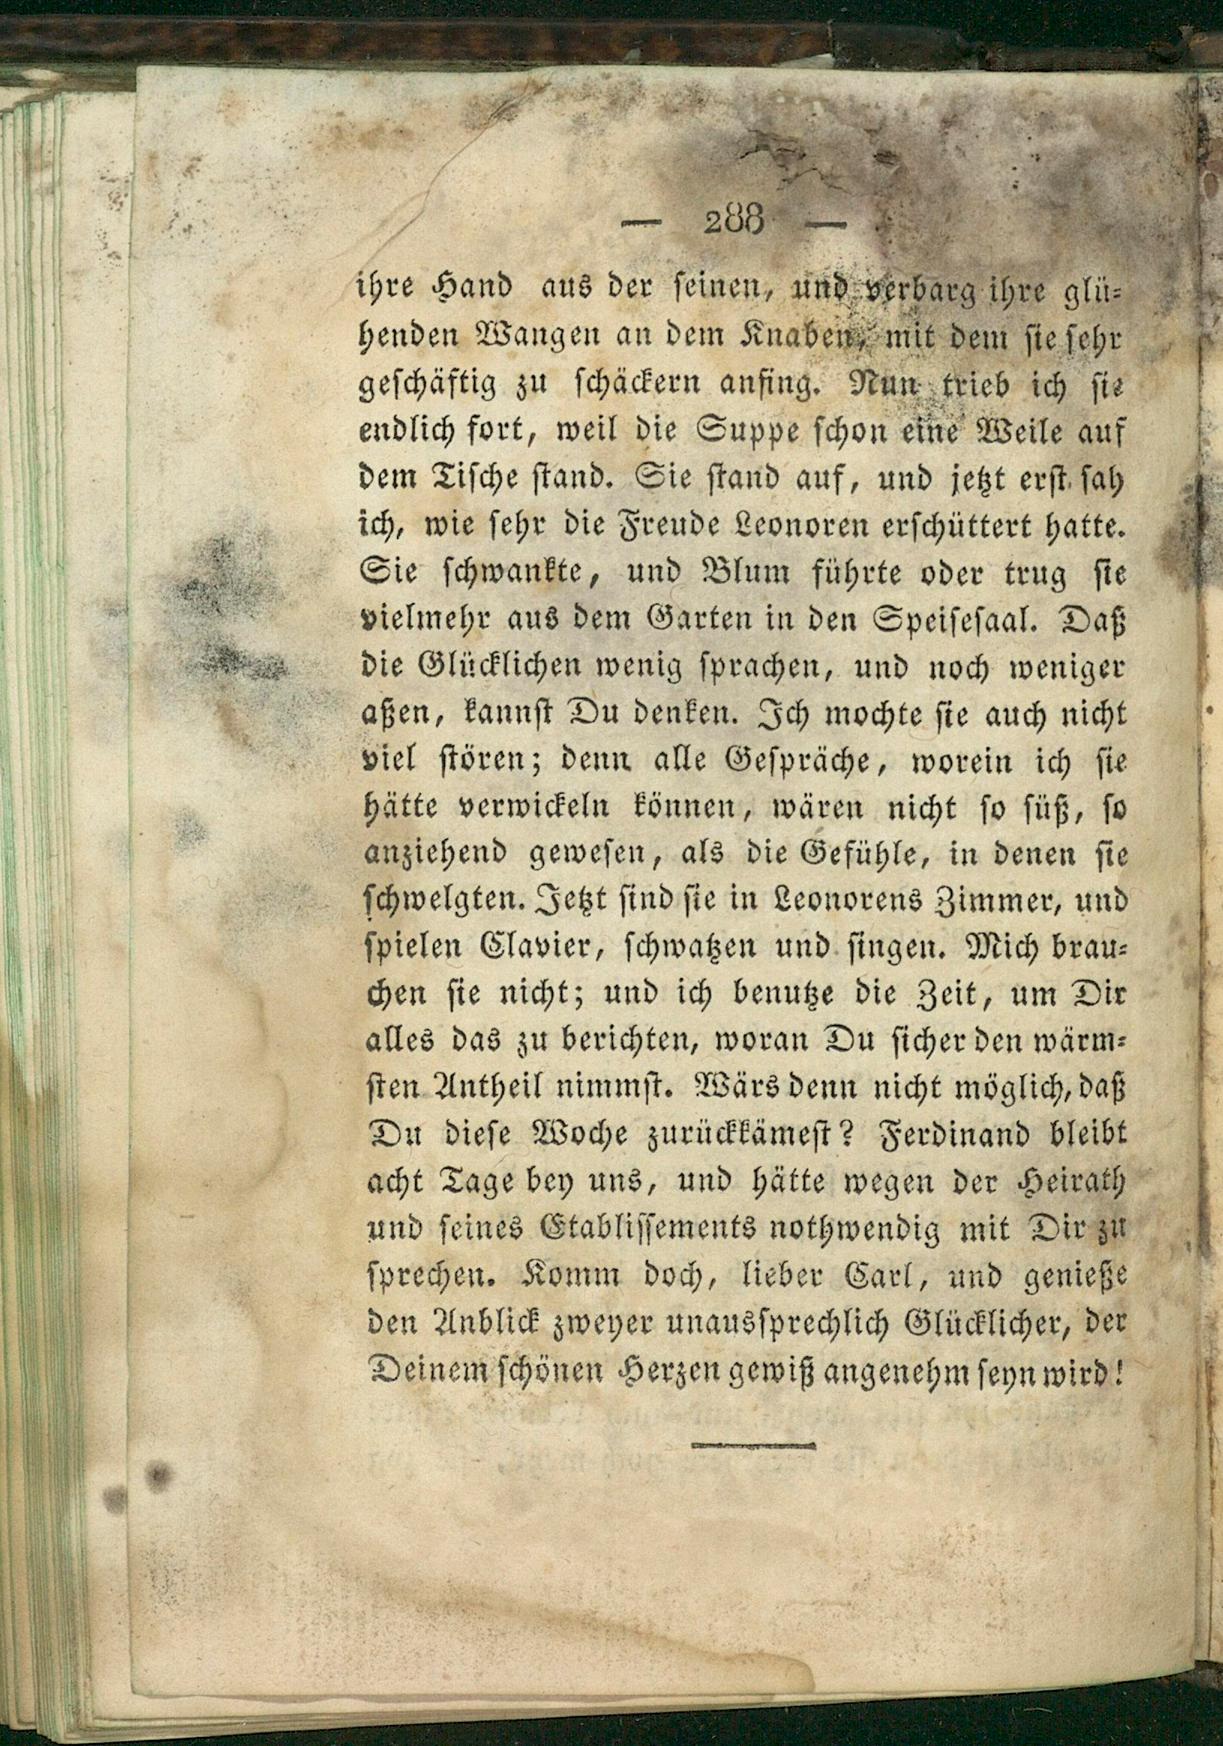 — 288 —
ihre Hand aus der seinen, und verbarg ihre glü-
henden Wangen an dem Knaben, mit dem sie sehr
geschäftig zu schäckern anfing. Nun trieb ich sie
endlich fort, weil die Suppe schon eine Weile auf
dem Tische stand. Sie stand auf, und jetzt erst sah
ich, wie sehr die Freude Leonoren erschüttert hatte.
Sie schwankte, und Blum führte oder trug sie
vielmehr aus dem Garten in den Speisesaal. Daß
die Glücklichen wenig sprachen, und noch weniger
aßen, kannst Du denken. Ich mochte sie auch nicht
viel stören; denn alle Gespräche, worein ich sie
hätte verwickeln können, wären nicht so süß, so
anziehend gewesen, als die Gefühle, in denen sie
schwelgten. Jetzt sind sie in Leonorens Zimmer, und
spielen Clavier, schwatzen und singen. Mich brau-
chen sie nicht; und ich benutze die Zeit, um Dir
alles das zu berichten, woran Du sicher den wärm-
sten Antheil nimmst. Wärs denn nicht möglich, daß
Du diese Woche zurückkämest? Ferdinand bleibt
acht Tage bey uns, und hätte wegen der Heirath
und seines Etablissements nothwendig mit Dir zu
sprechen. Komm doch, lieber Carl, und genieße
den Anblick zweyer unaussprechlich Glücklicher, der
Deinem schönen Herzen gewiß angenehm seyn wird!